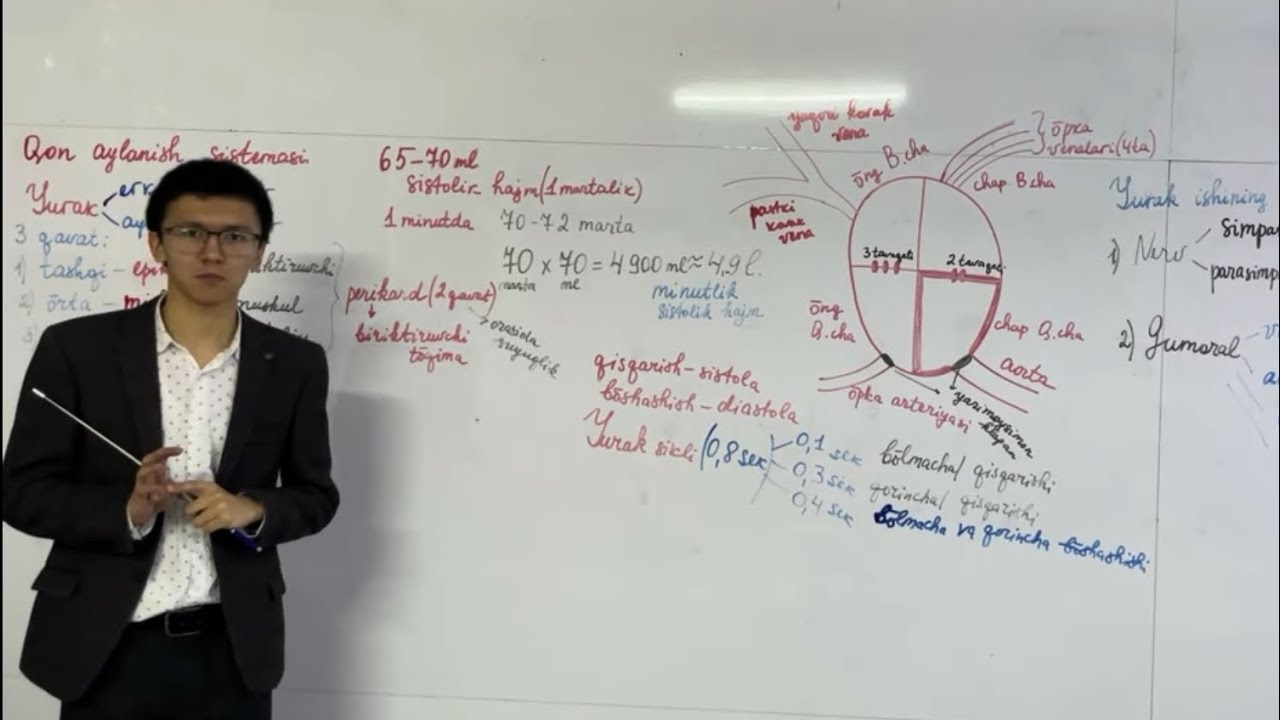 Qon aylanish sistemasi
Yurak
3 qavat:
1) tashqi -
2) ōrta -
muskul
65-70 ml
sistolik hajm (1 martalik)
1 minutda 70-72 marta
70 x 70 = 4900 ml ≈ 4,9 l.
marta ml
minutlik
sistolik hajm
perikard (2 qavat)
orasida
suyuqlik
biriktiruvchi
tōqima
qisqarish - sistola
bōshashish - diastola
Yurak sikli (0,8 sek
0,1 sek bōlmacha/ qisqarishi
0,3 sek qorincha/ qisqarishi
0,4 sek bōlmacha va qorincha bōshashishi
yuqori kavak
vena
pastki
kavak
vena
ōng B.cha
chap B.cha
ōpka
venalari (4ta)
3 tavaqali
2 tavaqali
ōng
Q.cha
chap Q.cha
aorta
ōpka arteriyasi
yarimoysimon
klapan
Yurak ishining
1) Nerv
simpa
parasimp
2) Gumoral